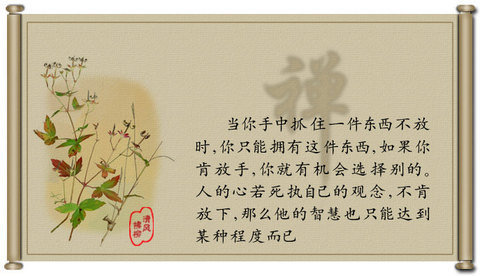 禅
当你手中抓住一件东西不放
时，你只能拥有这件东西，如果你
肯放手，你就有机会选择别的。
人的心若死执自己的观念，不肯
放下，那么他的智慧也只能达到
某种程度而已
清风
拂柳